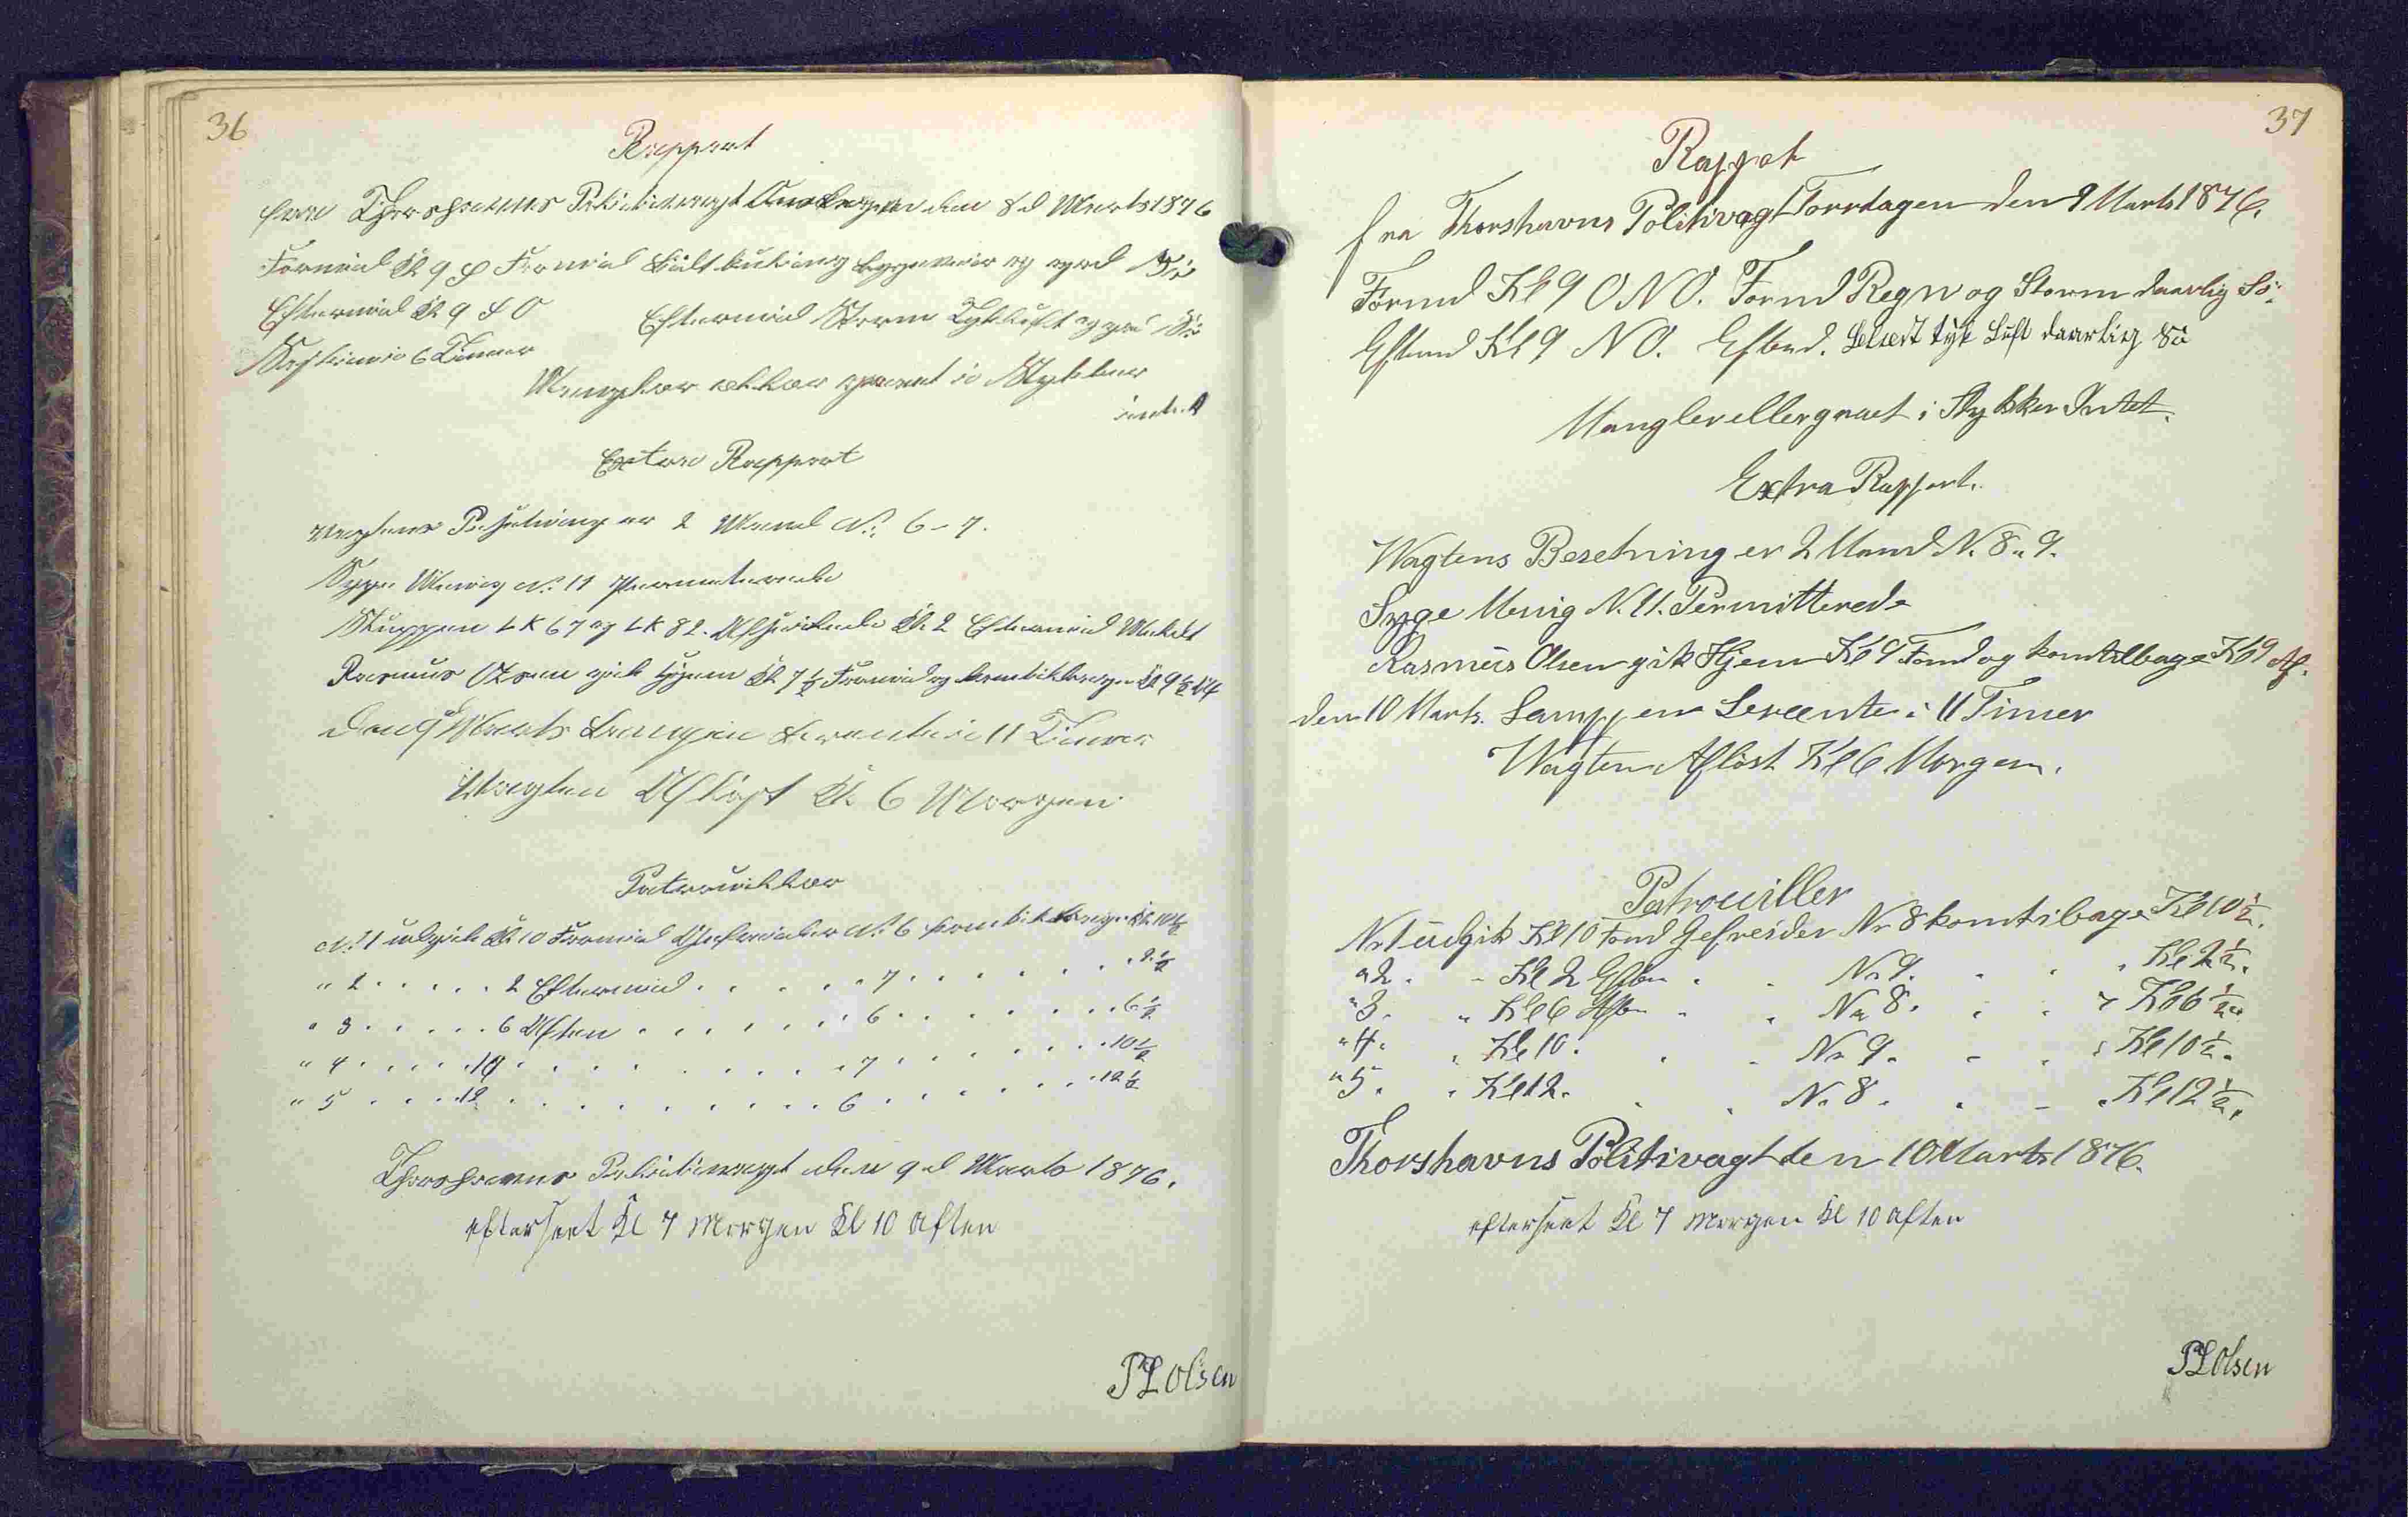 36
Rapport
fra Thorshavns Politivagt Onsdagen den 8d Marts 1876
Formid Kl 9 S Formid Byggeveir og god Sö
Eftermid Kl 9 S O Eftermid Storm Tyk Luft og god Sö
6 Timer
Mangler eller gaaet i Stykker
intet
Extra Rapport
Vagtens Besetning er 2 Mand No. 6 - 7.
Syge Menig No. 11 Permiterede
Sluppen LK 67 og LK 82. Afseilede Kl. 2 Eftermid
Rasmus Olsen gik hjem Kl 7½ Formid og kom tilbage Kl 9½ Af
den 9d Marts Lampen brænte i 11 Timer
Vagten Aflöst Kl. 6 Morgen
Patrouiller
No. 1 udgik Kl. 10 Formid Gefreider No. 6 kom tilbage Kl. 10½
" 2 . . . . . 2 Eftermid . . . . . 7 . . . . . . . 2½
" 3 . . . . . 6 Aften . . . . . . 6 . . . . . . . 6½
" 4 . . . . . 10 . . . . . . . . . 7 . . . . . . . 10½
" 5 . . . . . 12 . . . . . . . . . 6 . . . . . . . 12½
Thorshavns Politivagt den 9d Marts 1876.
efterseet Kl 7 Morgen Kl 10 Aften
PL Olsen
37
Rappot
fra Thorshavns Politivagt Torsdagen den 9 Marts 1876.
Formd Kl 9 O N O. Formd Regn og Storm daarlig Sö.
Eftmd Kl 9 N O. Eftmd. tyk Luft daarlig Sö
Mangler eller gaaet i Stykker Intet.
Extra Rapport.
Wagtens Besetning er 2 Mand N. 8 " 9.
Syge Menig N. 11. Permitterede
Rasmus Olsen gik Hjem Kl 9 Fomd og kom tilbage Kl 9 Af.
den 10 Marts. Lamppen i 11 Timer
Wagten Aflöst Kl 6 Morgen.
Patrouiller
Nr 1 udgik Kl 10 Fomd Gefreider Nr 8 kom tilbage Kl 10½.
" 2. " Kl 2 Eftm " . Nr 9. . . " Kl 2½.
" 3. " Kl 6 Aften " . Nr 8. . . " Kl 6½.
" 4. " Kl 10. . . Nr 9. . . " Kl 10½.
" 5. " Kl 12. . . Nr 8. . . Kl 12½.
Thorshavns Politivagt den 10 Marts 1876.
efterseet Kl 7 Morgen Kl 10 Aften
PL Olsen